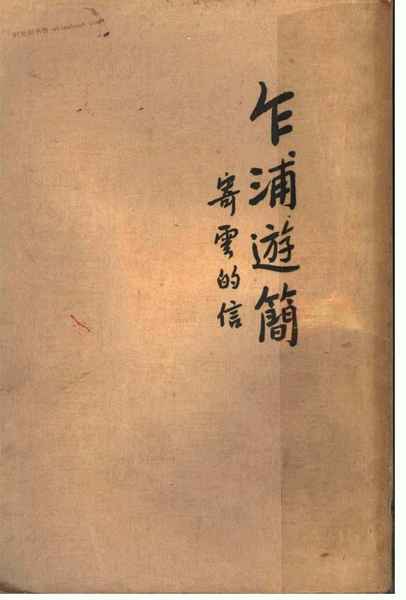 乍浦遊簡
寄雲的信